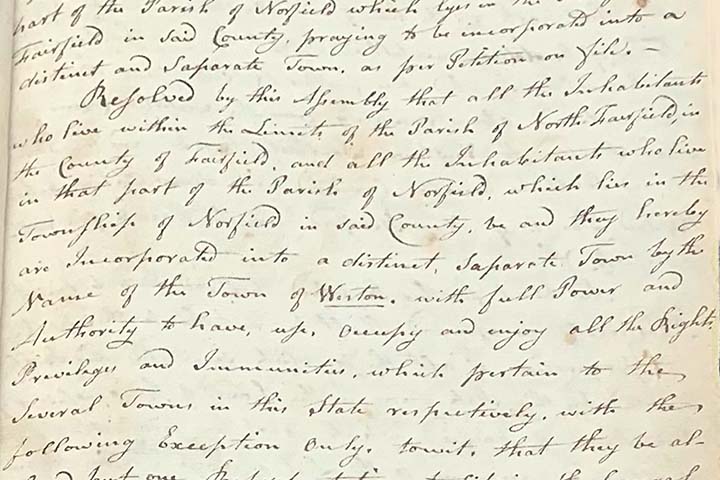 part of the Parish of Norfield which lyes in the
Fairfield in said County, praying to be incorporated into a
distinct and Saparate Town, as per Petition on file. –
Resolved by this Assembly that all the Inhabitants
who live within the Limits of the Parish of North Fairfield in
the County of Fairfield, and all the Inhabitants who live
in that part of the Parish of Norfield, which lies in the
Township of Norfield in said County, be and they hereby
are Incorporated into a distinct, Saparate Town by the
Name of the Town of Weston, with full Power and
Authority to have, use, occupy and enjoy all the Rights,
Privileges and Immunities, which pertain to the
Several Towns in this State respectively, with the
following Exception Only, towit, that they be al-
but one